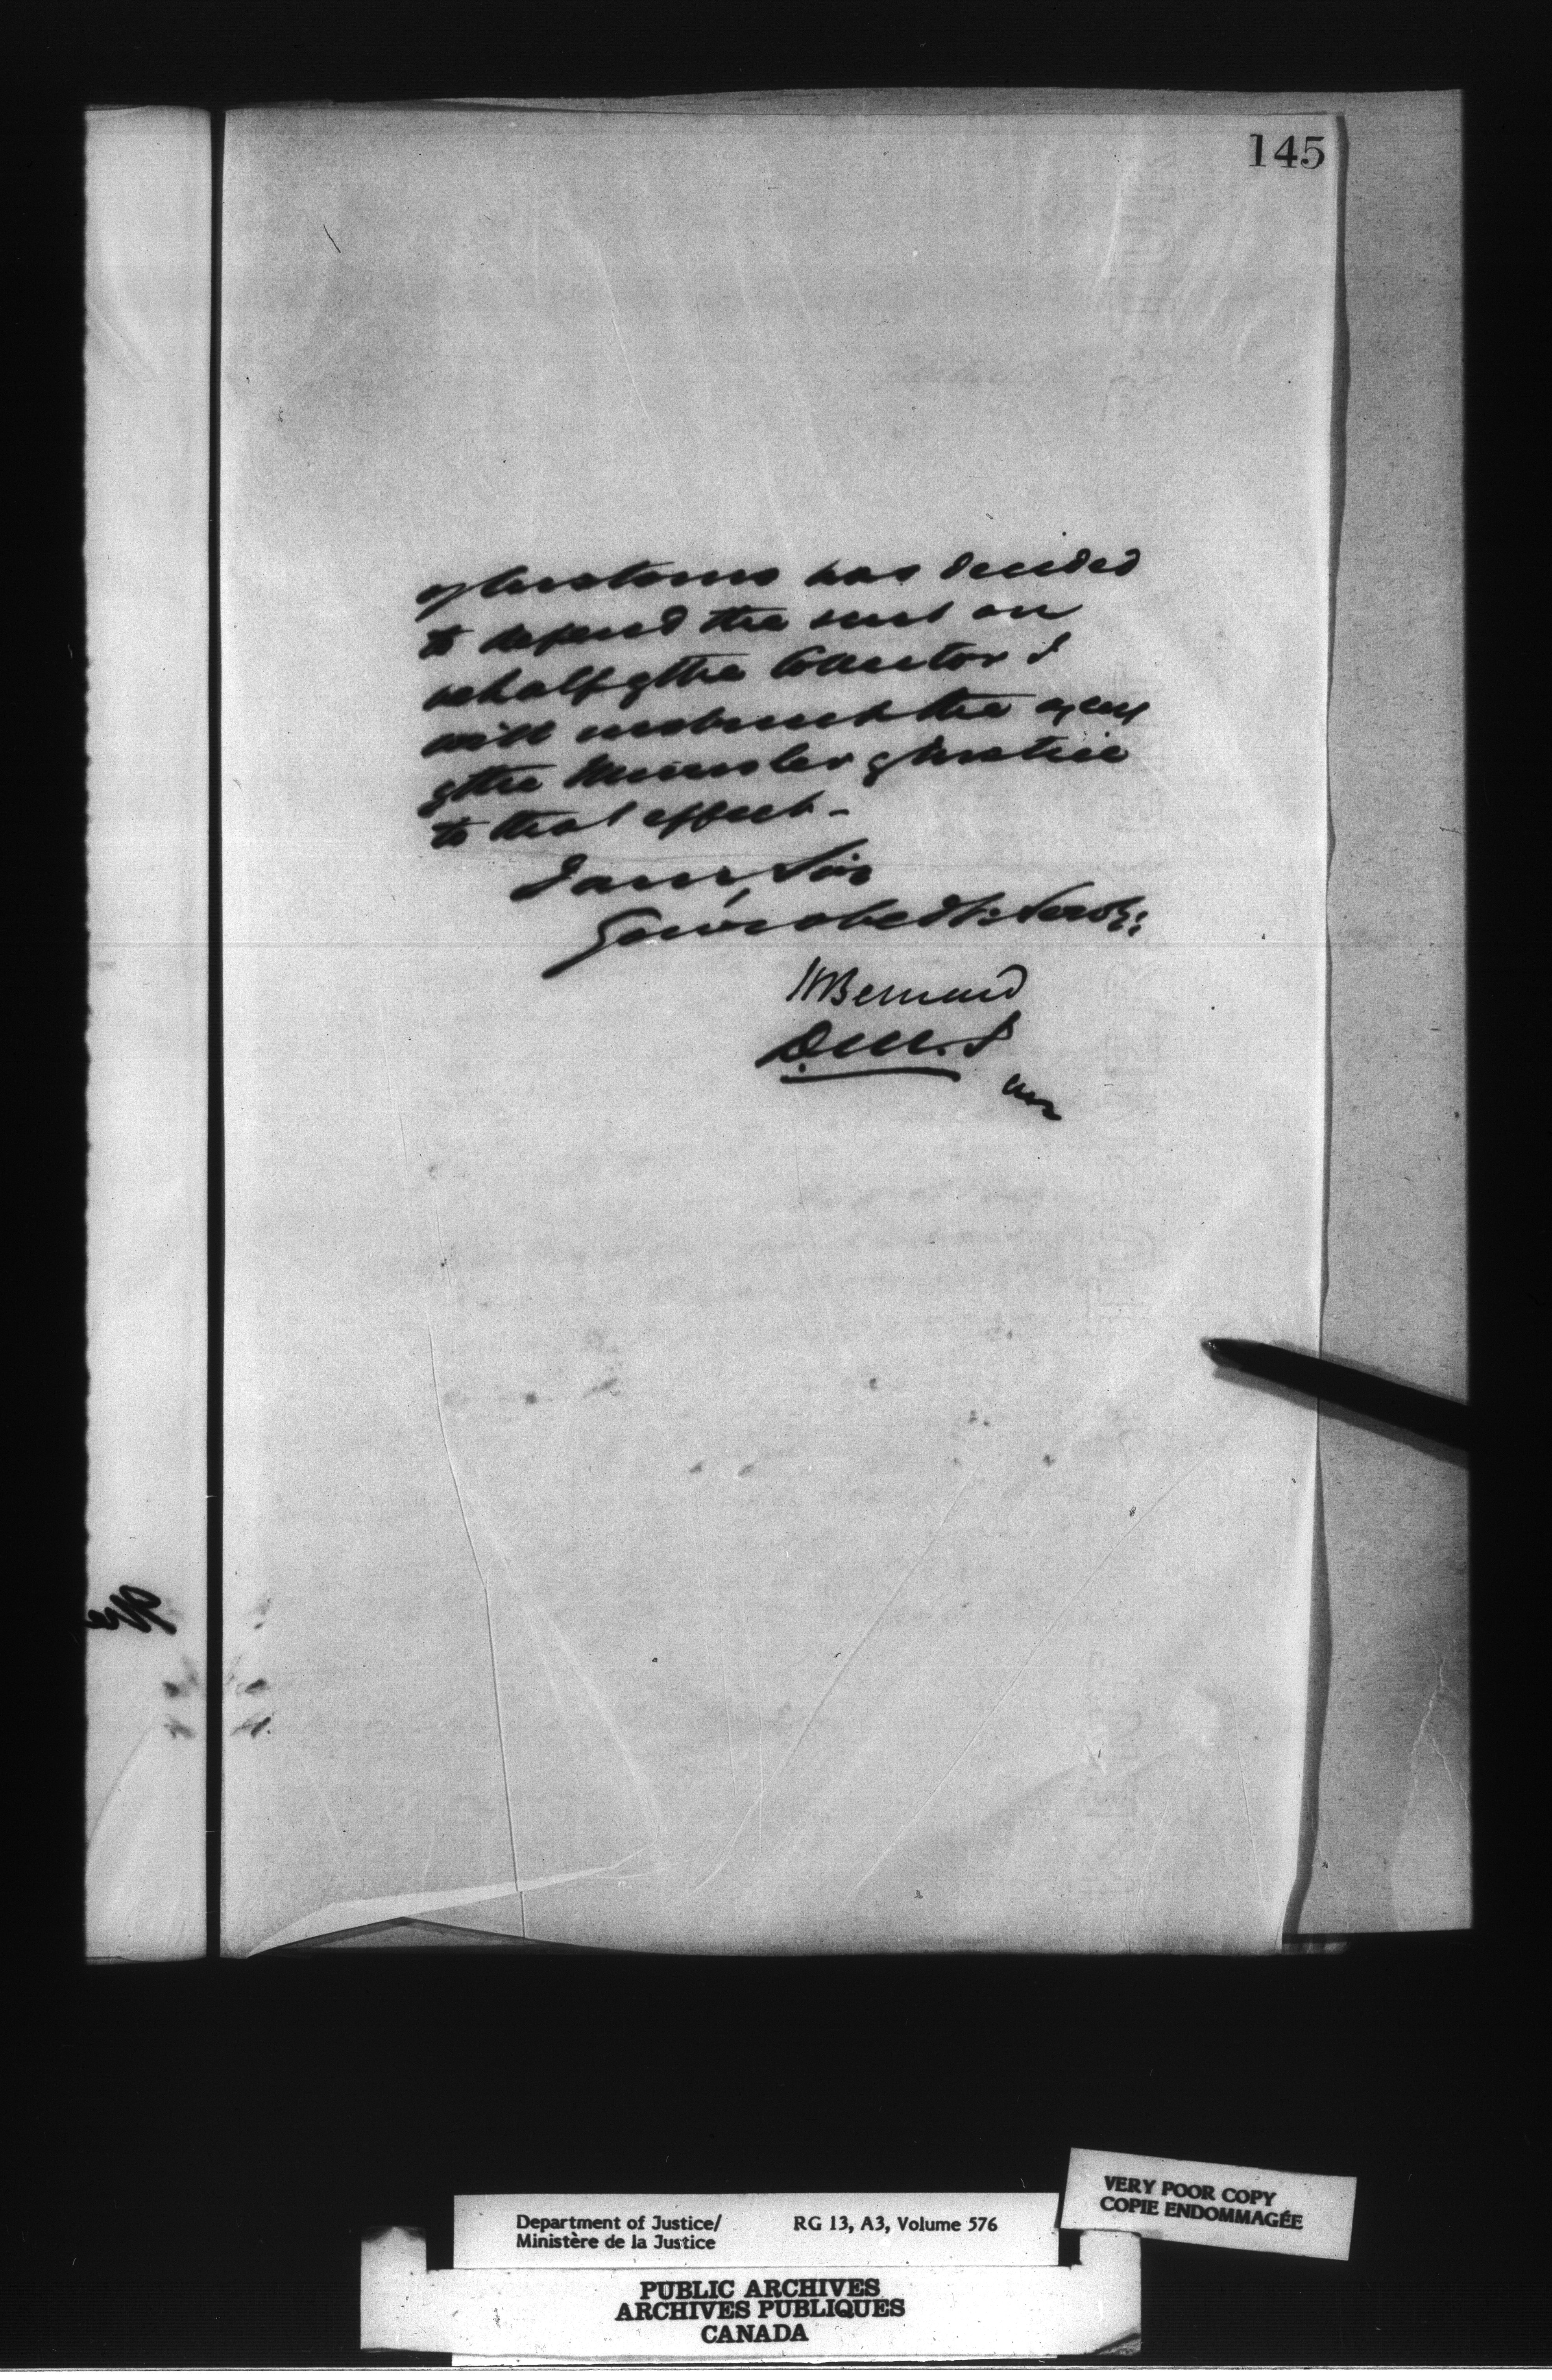 145
of Customs has decided
to defend the suit on
behalf of the Collector I
will instruct the agent
of the Minister of Justice
to that effect -
I am, Sir
Your obedt: Servt:
HBernard
D.M.J
VERY POOR COPY
COPIE ENDOMMAGÉE
Department of Justice/ RG 13, A3, Volume 576
Ministère de la Justice
PUBLIC ARCHIVES
ARCHIVES PUBLIQUES
CANADA